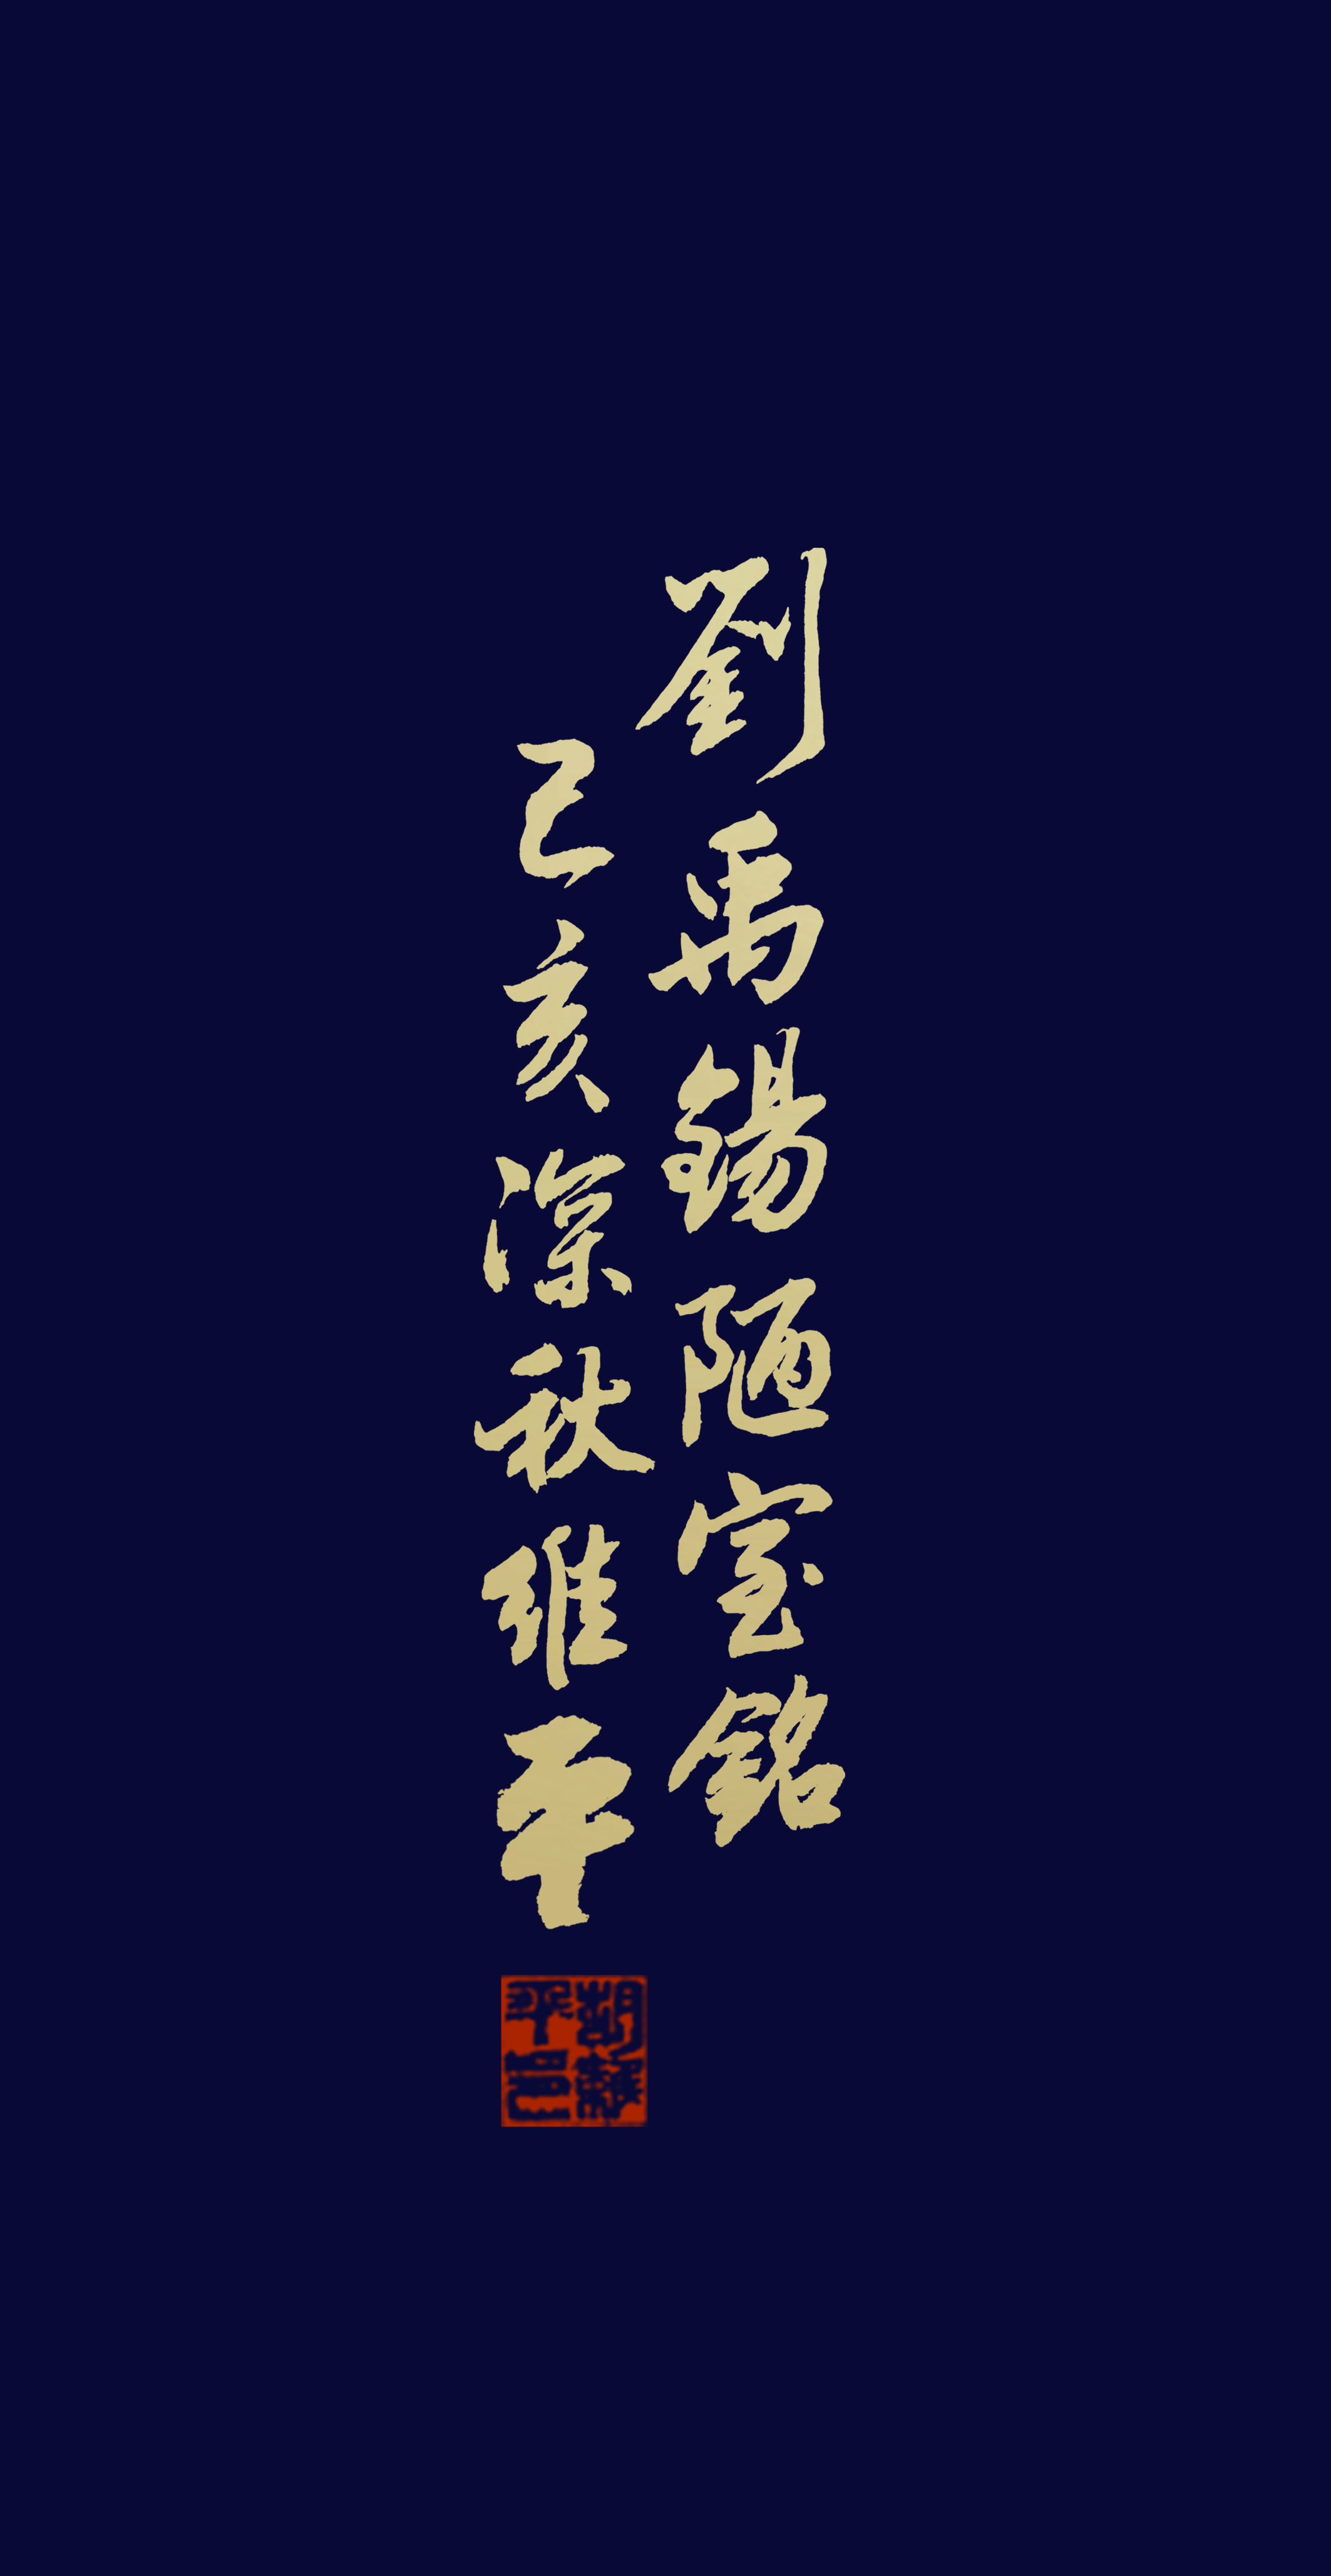 劉禹錫陋室銘
己亥深秋維平
胡維平印